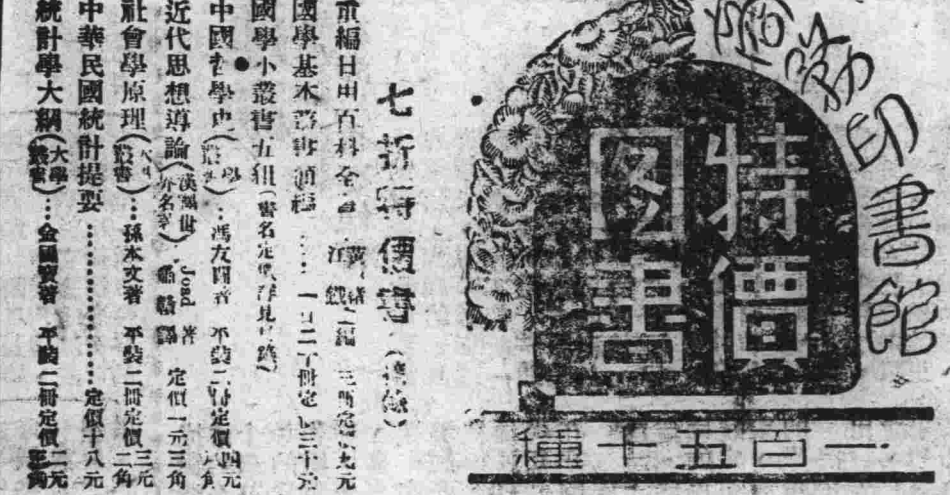 商務印書館
特價
图書
一百五十種
七折特價書
重編日用百科全書 黃紹緒 江鐵 編 三冊定價九元
國學基本叢書 ⋯⋯ 一百二十冊定價三十元
國學小叢書五組（書名定價
中國哲學史（大學叢書）⋯馮友蘭著 平裝二冊定價四元八角
近代思想導論（漢譯世界名著）Joad 著 蕭贛譯 定價一元三角
社會學原理（大學叢書）⋯孫本文著 平裝二冊定價三元二角
中華民國統計提要⋯⋯⋯⋯定價十八元
統計學大綱（大學叢書）⋯金國寶著 平裝二冊定價二元